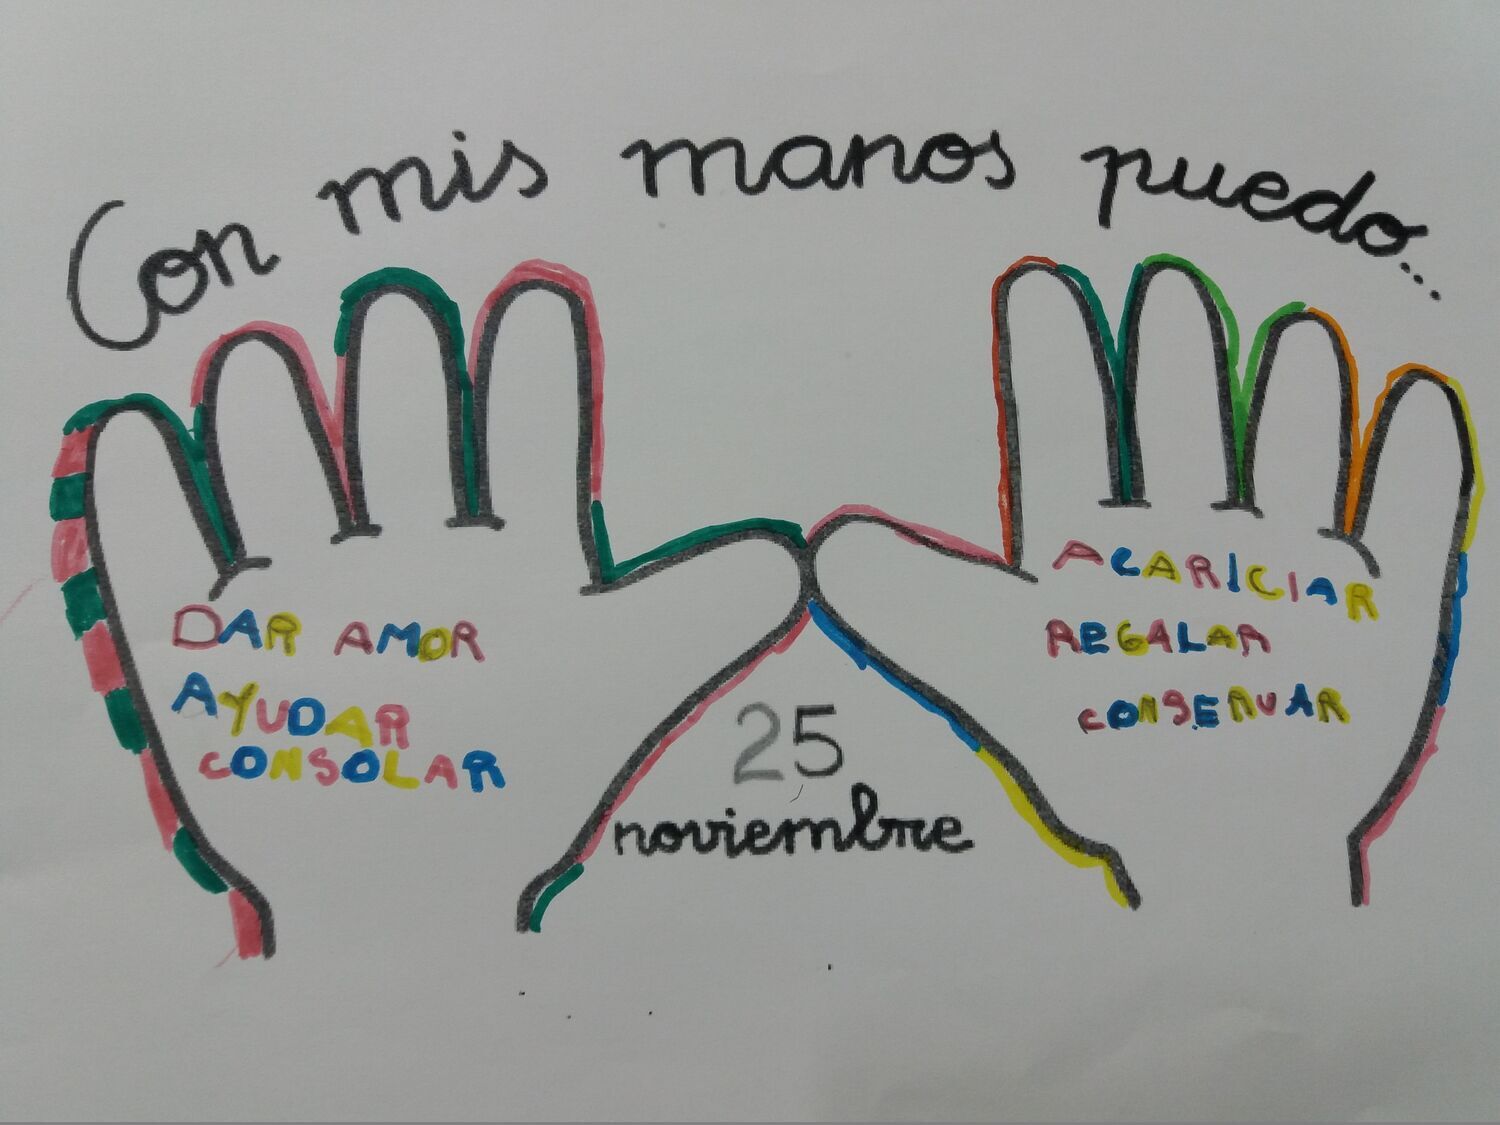 Con mis manos puedo...
DAR AMOR
AYUDAR
CONSOLAR
ACARICIAR
REGALAR
CONSERVAR
25
noviembre